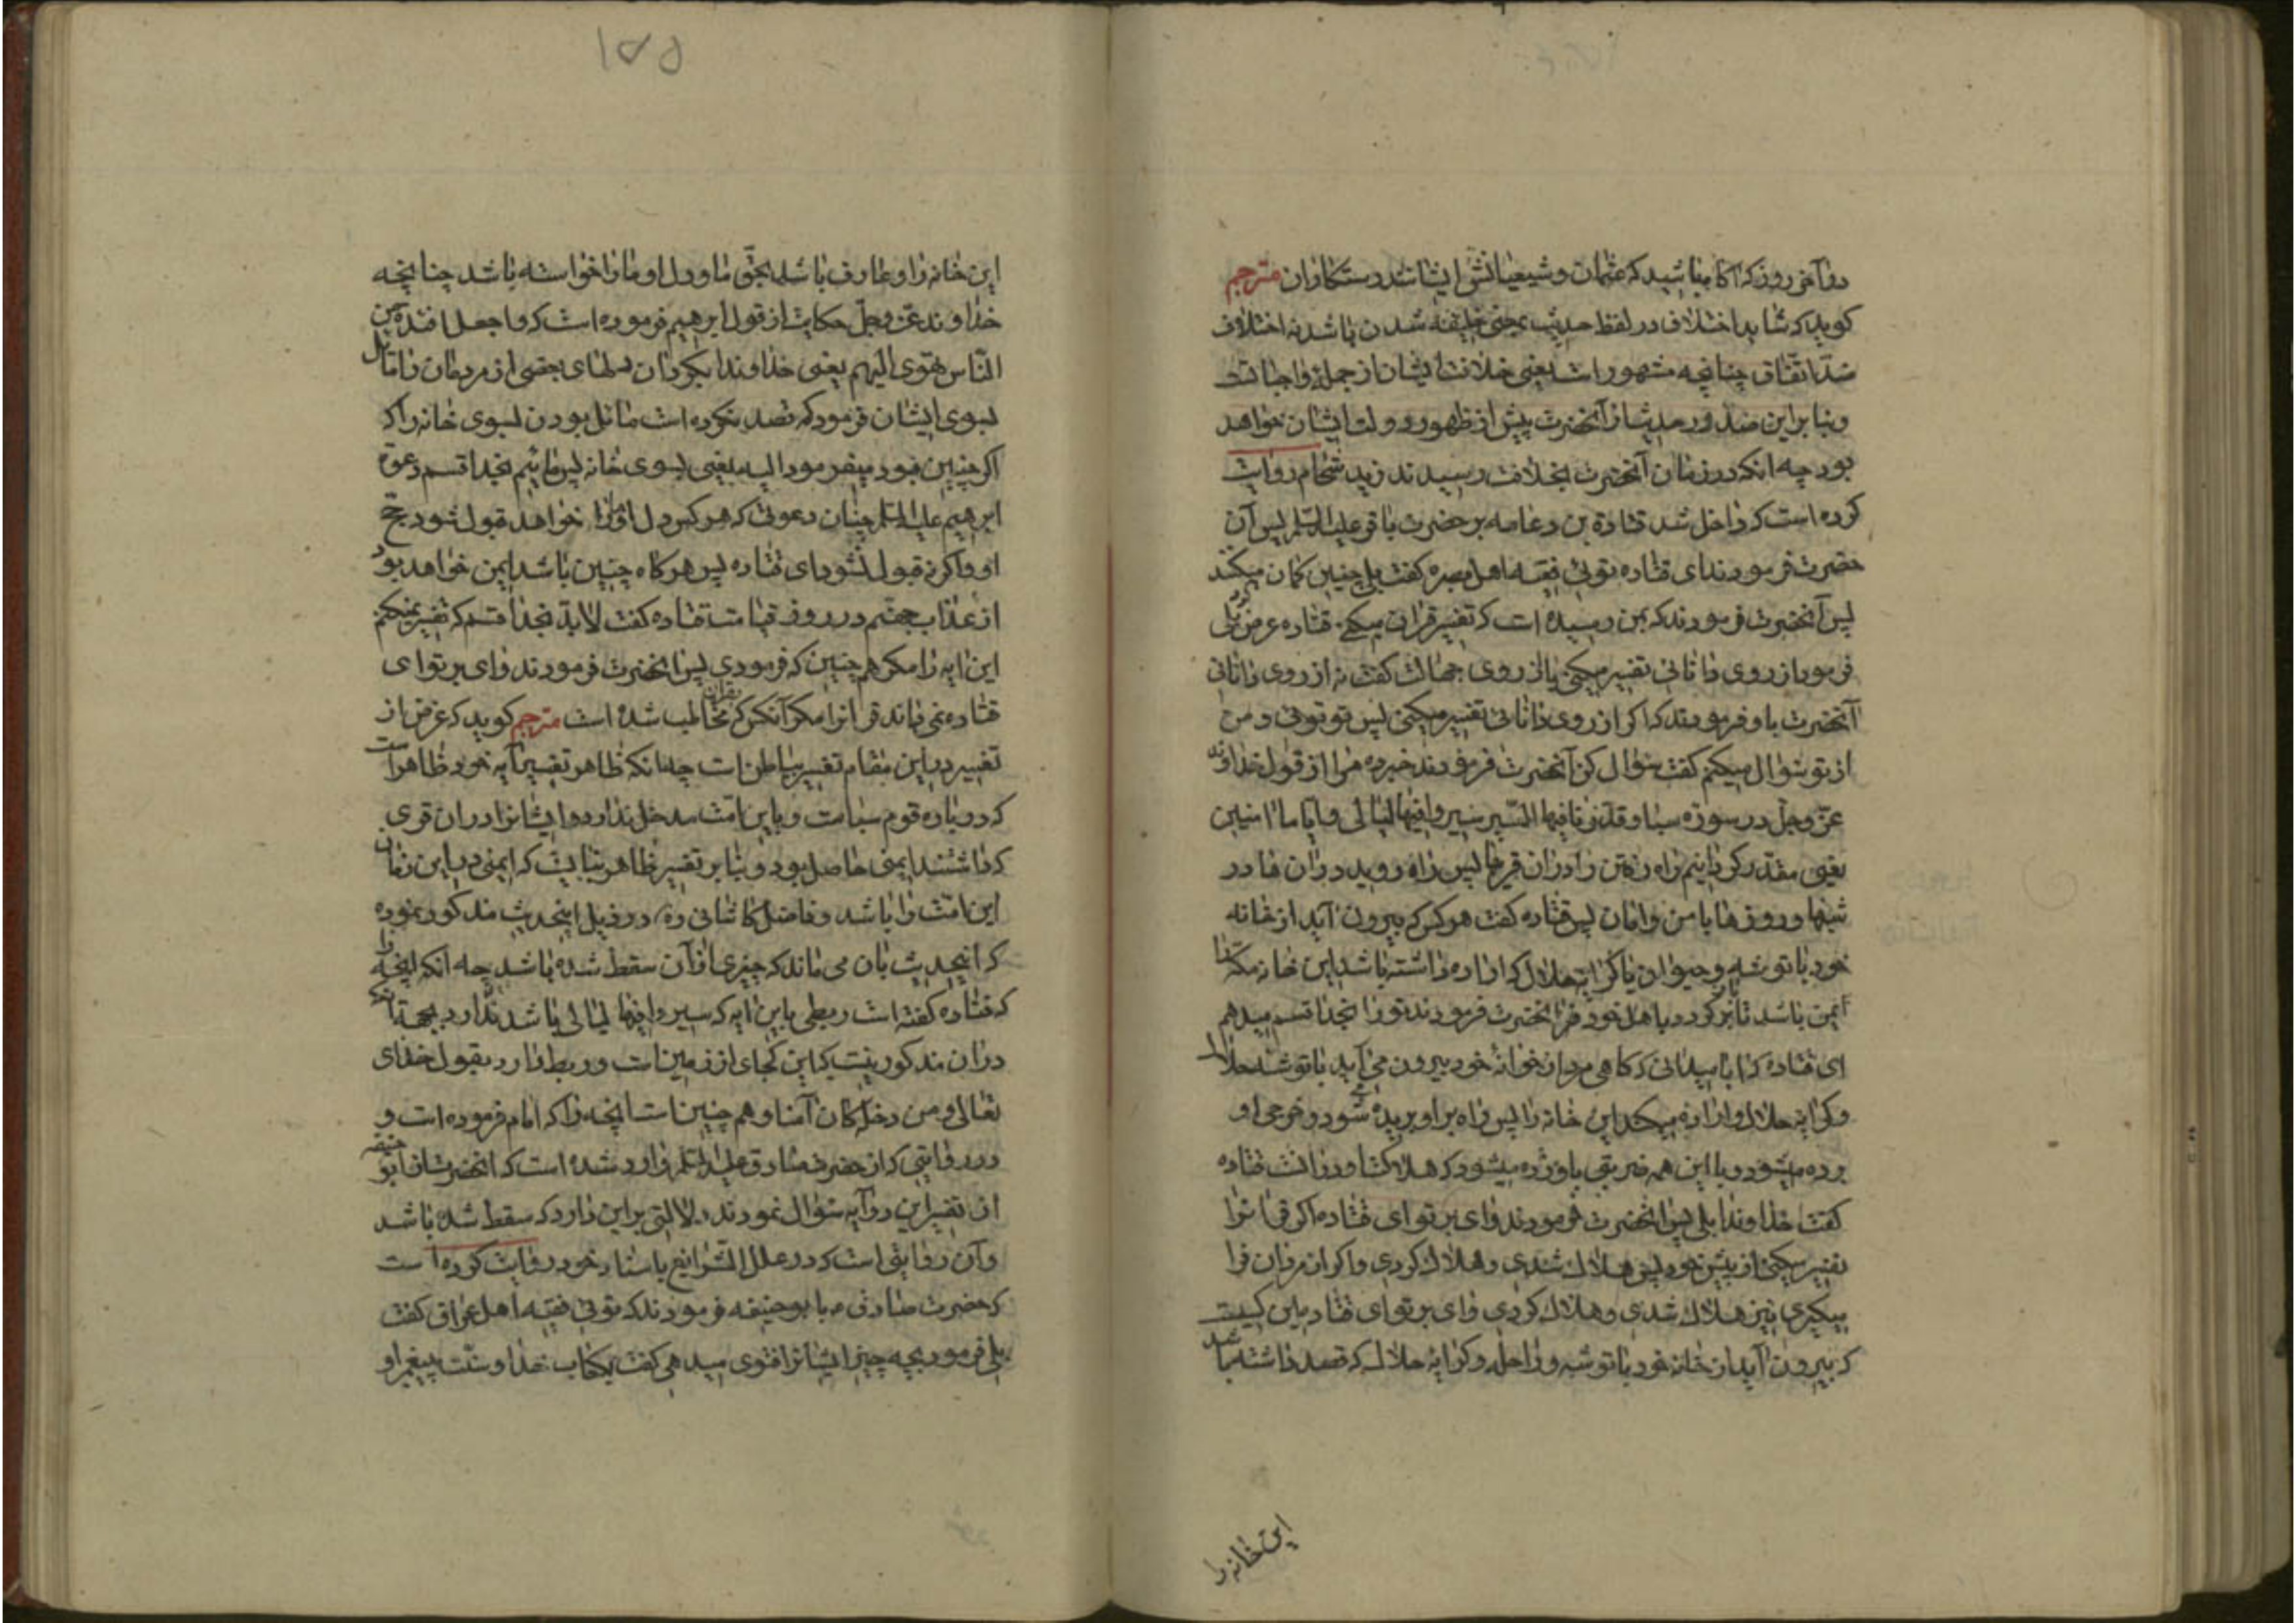 در آخر روز که آکاه باشید که عثمان و شیعیانش ایشانند رستکاران مترجم
کوید که شاید اختلاف در لفظ حدیث یعنی خلیفه شدن باشد نه اختلاف
ضد اتفاق چنانچه مشهور است یعنی خلافت ایشان از جمله واجباتست
و بنا بر این صدور حدیث از آنحضرت پیش از ظهور دولت ایشان خواهد
بود چه انکه در زمان آنحضرت بخلافت رسیدند زید شحام روایت
کرده است که داخل شد قتادة بن دعامه بر حضرت باقر علیه السلم پس آن
حضرت فرمودند ای قتاده توئی فقیه اهل بصره کفت بلی چنین کمان میکنند
پس آنحضرت فرمودند که بمن رسیده است که تفسیر قران میکنی قتاده عرض کرد بلی
فرمود از روی دانائی تفسیر میکنی یا از روی جهالت کفت نه از روی دانائی
آنحضرت باو فرمودند که اکر از روی دانائی تفسیر میکنی پس تو توئی و من
از تو سؤال میکنم کفت سؤال کن آنحضرت فرمودند خبر ده مرا از قول خداوند
عزّ وجلّ در سوره سبا وقدّرنا فیها السّیر سیروا فیها لیالی و ایاما امنین
یعنی مقدّر کردانیم راه رفتن را در ان قریها پس راه روید در ان ها در
شبها و روزها با من و امان پس قتاده کفت هر کس که بیرون آید از خانه
خود با توشه و حیوان یا کرایه حلال که اراده داشته باشد این خانه مکّه را
ایمن باشد تا بر کردد باهل خود آنحضرت فرمودند تو را بخدا قسم میدهم
ای قتاده که ایا میدانی که کاهی مرد از خوانهٔ خود بیرون می آید با توشه حلال
و کرایه حلال و اراده میکند این خانه را پس راه بر او بریده شود و خرجی او
برده میشود و با این همه ضربتی باو زده میشود که هلاکت او در انست قتاده
کفت خداوندا بلی پس آنحضرت فرمودند وای بر تو ای قتاده اکر قرانرا
تفسیر میکنی از پیش خود پس هلاک شدی و هلاک کردی و اکر از مردان فرا
میکیری نیز هلاک شدی و هلاک کردی وای بر تو ای قتاده این کیست
که بیرون آید از خانه خود با توشه و راحله و کرایه حلال که قصد داشته باشد
این خانه را
۱۵۵
این خانه را و عارف باشد بحقّ ما و دل او ما را خواسته باشد چنانچه
خداوند عزّ وجلّ حکایت از قول ابرهیم فرموده است که واجعل افئدة من
النّاس تهوی الیهم یعنی خداوندا بکردان دلهای بعضی از مردمان را مایل
بسوی ایشان فرمود که قصد نکرده است مائل بودن بسوی خانه را که
اکر چنین بود میفرمود الیه یعنی بسوی خانه پس مائیم بخدا قسم دعوة
ابرهیم علیه السلم چنان دعوتی که هر کس دل او ما را خواهد قبول شود حجّ
او و اکر نه قبول نشود ای قتاده پس هر کاه چنین باشد ایمن خواهد بود
از عذاب جهنّم در روز قیامت قتاده کفت لابدّ بخدا قسم که تفسیر نمیکنم
این ایه را مکر هم چنین که فرمودی پس انحضرت فرمودند وای بر تو ای
قتاده نمی داند قرانرا مکر آنکس که بقران مخاطب شده است مترجم کوید که غرض از
تفسیر در این مقام تفسیر باطن است چه انکه ظاهر تفسیر آیه خود ظاهر است
که در باره قوم سبا است و باین امّت مدخل ندارد و ایشانرا در ان قری
که داشتند ایمنی حاصل بود و بنا بر تفسیر ظاهر نبایست که ایمنی در این زمان
این امّت را باشد و فاضل کاشانی ره در ذیل اینحدیث مذکور نموده
که اینحدیث بان می ماند که چیزی از آن سقط شده باشد چه انکه اینچه را
که قتاده کفته است ربطی باین ایه که سیروا فیها لیالی باشد ندارد بجهة انکه
در ان مذکور نیست که این کجای از زمین است و ربط دارد بقول خدای
تعالی و من دخله کان آمنا و هم چنین است انچه را که امام فرموده است و
در روایتی که از حضرت صادق علیه السلم وارد شده است که انحضرت از ابو حنیفه
از تفسیر این دو آیه سؤال نمودند دلالتی بر این دارد که سقط شده باشد
و آن روایتی است که در علل الشّرایع باسناد خود روایت کرده است
که حضرت صادق ع با بو حنیفه فرمودند که توئی فقیه اهل عراق کفت
بلی فرمود بچه چیز ایشانرا فتوی میدهی کفت بکتاب خدا و سنّت پیغمبر او